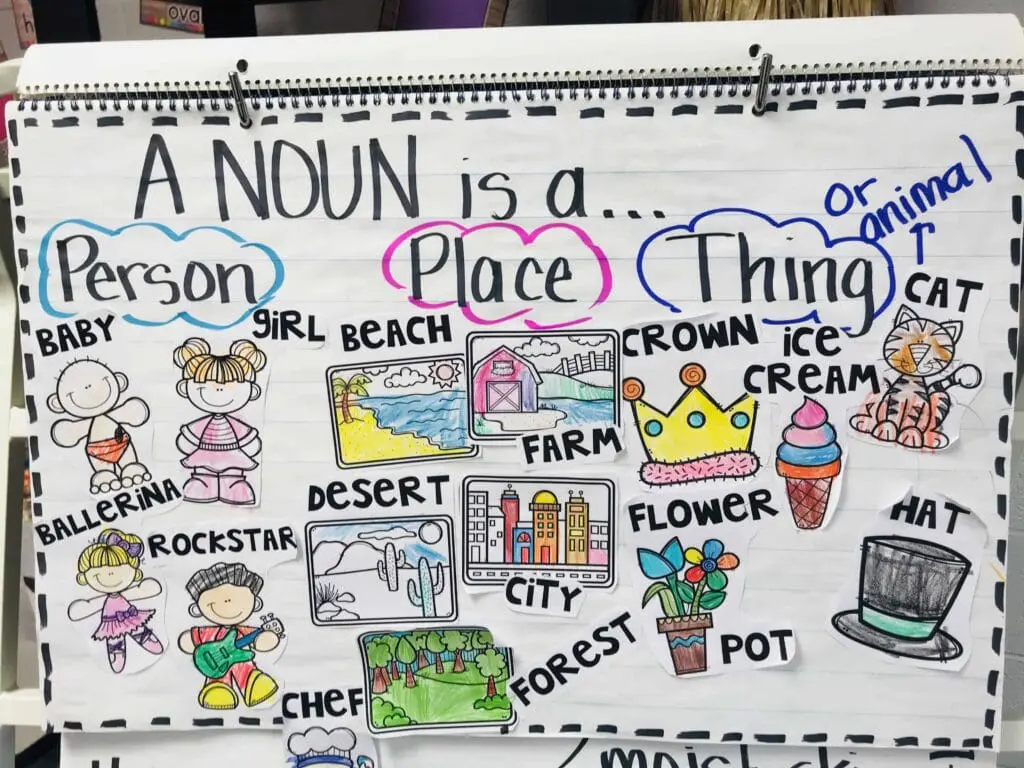 ova
A NOUN is a...
or
animal
Person
Place
Thing
BABY
GiRL
BEACH
FARM
CROWN
iCE
CREAM
CAT
BALLERiNA
ROCKSTAR
DESERT
CiTY
FLOWER
POT
HAT
CHEF
FOREST